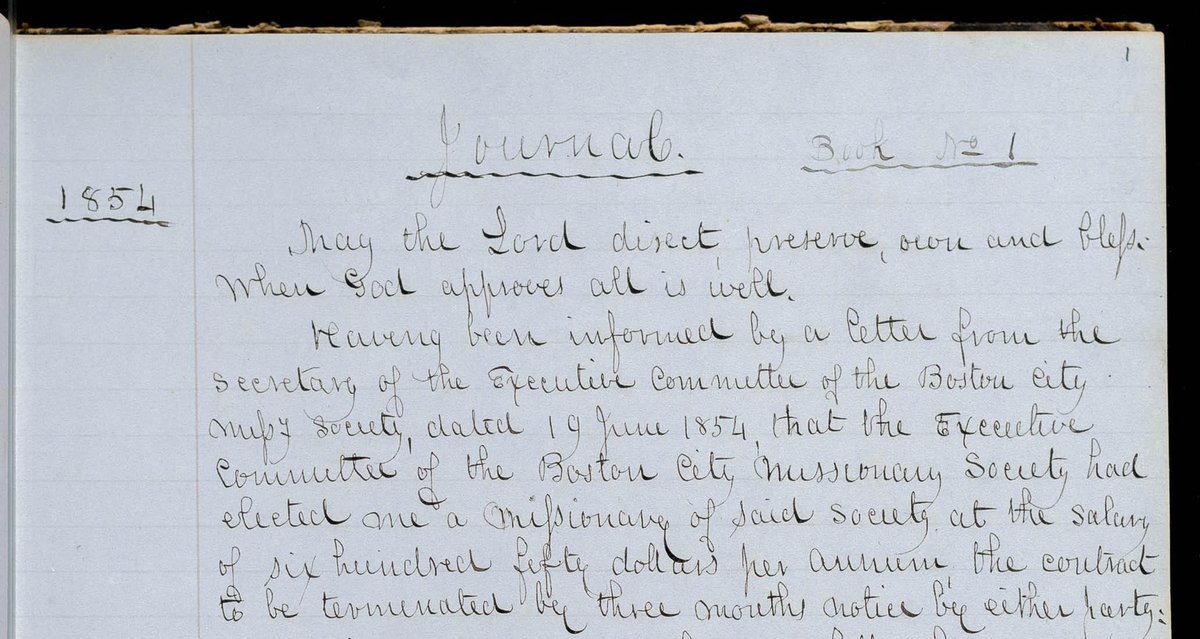 1
Journal. Book No 1
1854
May the Lord direct, preserve, own and bless.
When God approves all is well.
Having been informed by a letter from the
Secretary of the Executive Committee of the Boston City
Missy Society, dated 19 June 1854, that the Executive
Committee of the Boston City Missionary Society had
elected me a Missionary of said Society at the salary
of six hundred fifty dollars per annum, the contract
to be terminated by three months notice by either party: